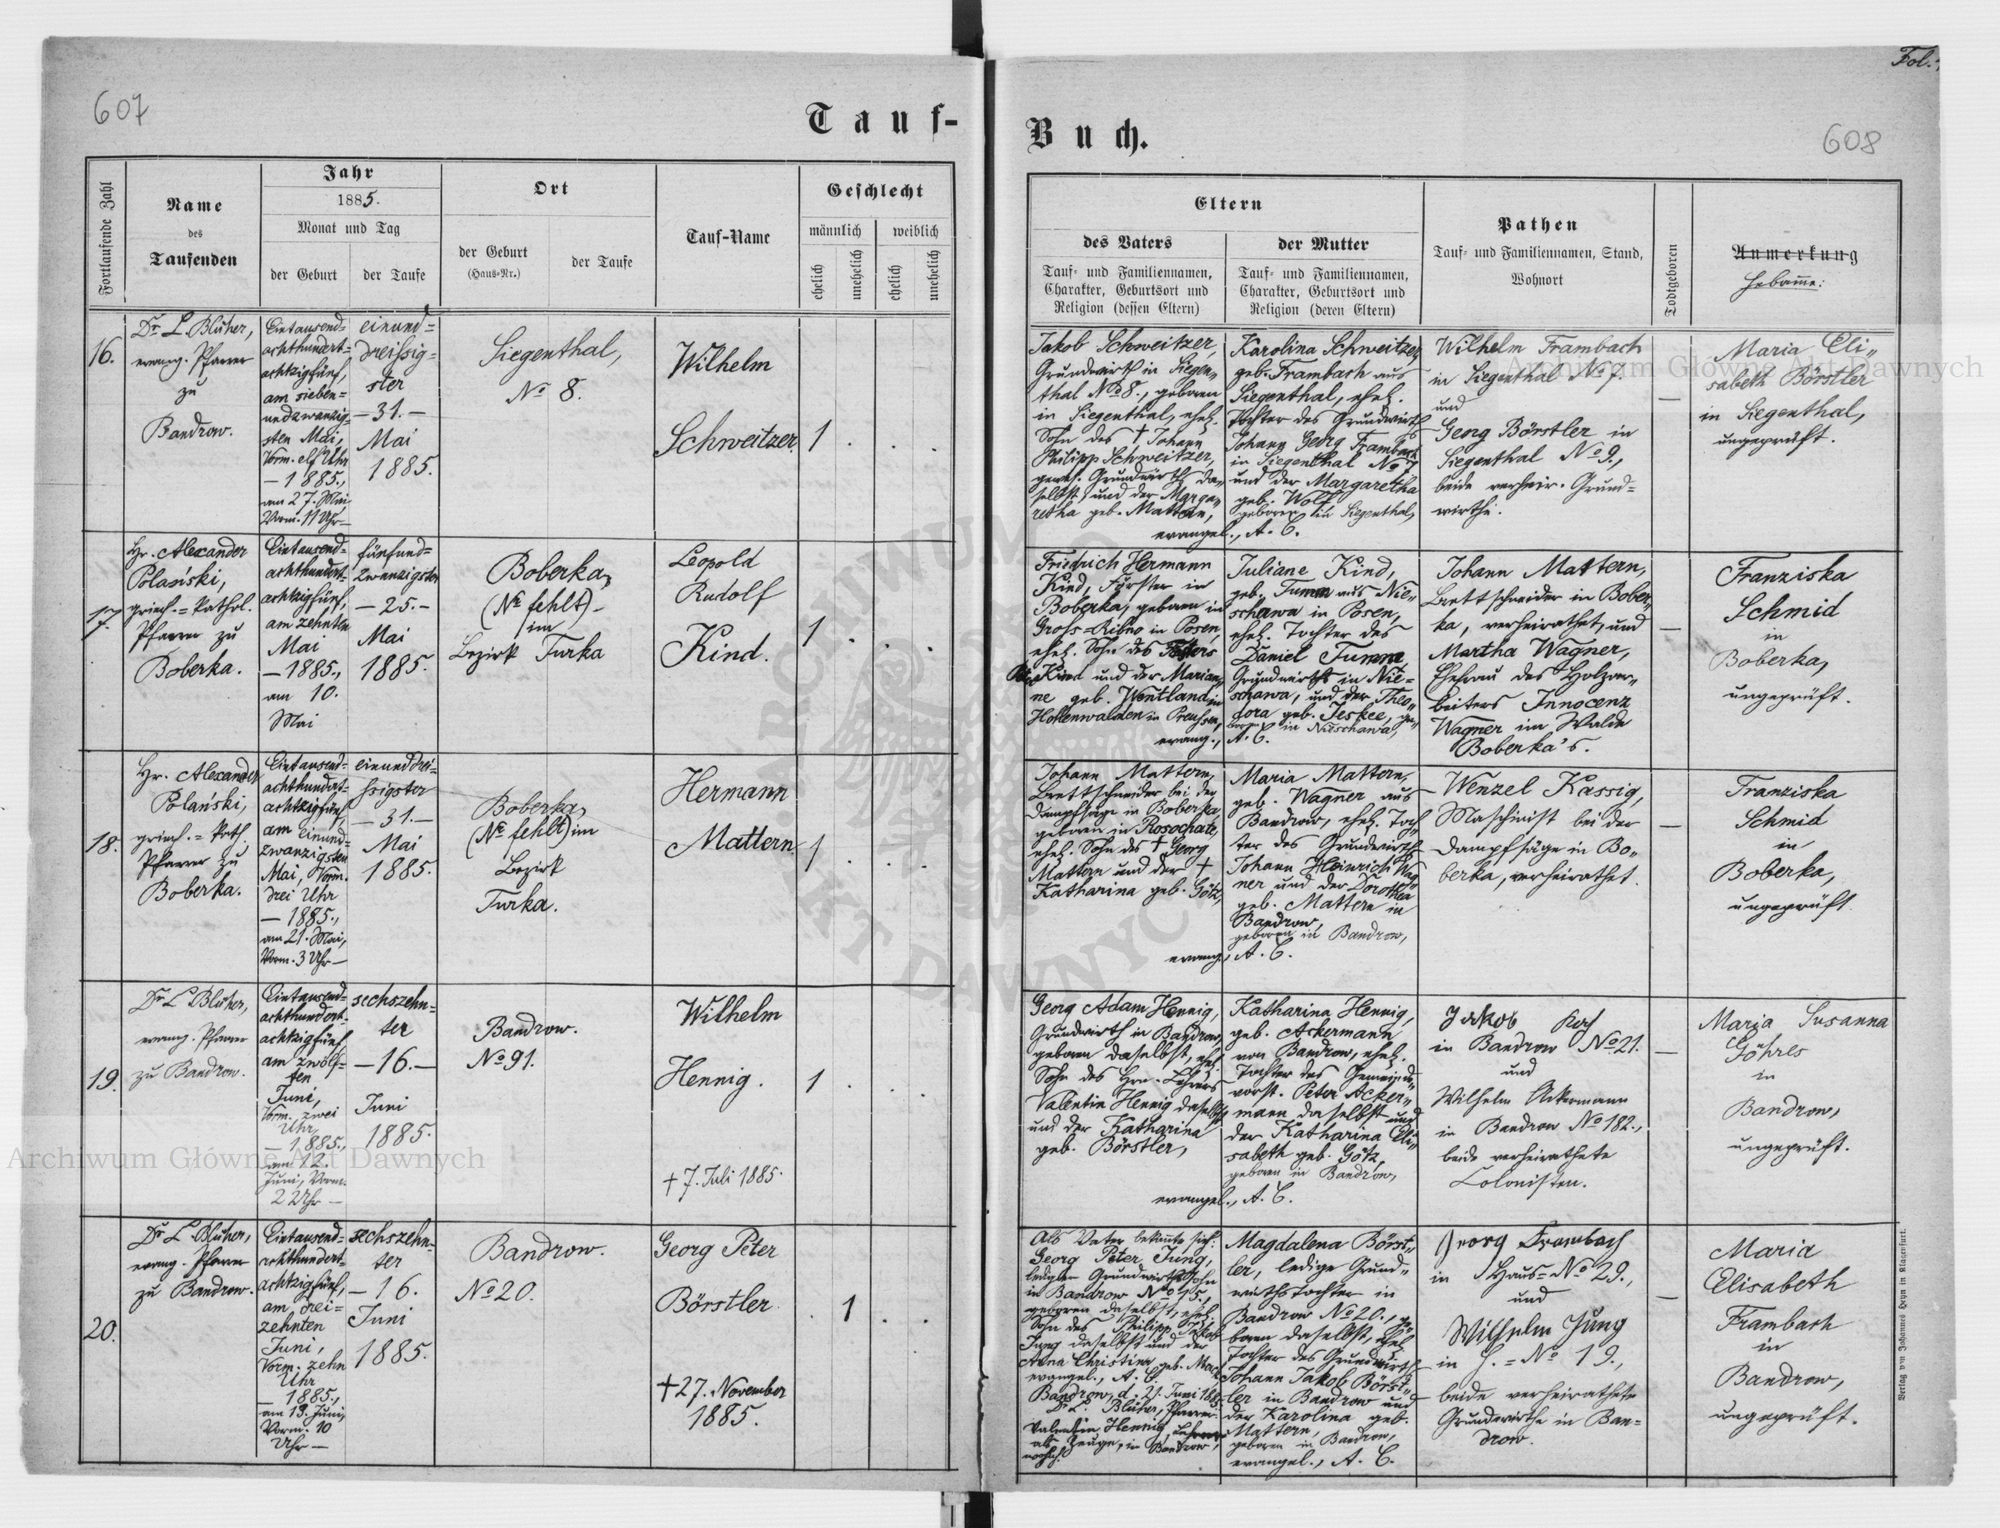 Fol.
607
Tauf-
Buch.
608
Fortlaufende Zahl
Name
des
Taufenden
Jahr
1885.
Monat und Tag
der Geburt
der Taufe
Ort
der Geburt
(Haus-Nr.)
der Taufe
Tauf-Name
Geschlecht
männlich
weiblich
ehelich
unehelich
ehelich
unehelich
Eltern
des Vaters
Tauf- und Familiennamen,
Charakter, Geburtsort und
Religion (dessen Eltern)
der Mutter
Tauf- und Familiennamen,
Charakter, Geburtsort und
Religion (deren Eltern)
Pathen
Tauf- und Familiennamen, Stand,
Wohnort
Todtgeboren
Anmerkung
Hebamme:
16.
Dr. L. Blüher,
evang. Pfarrer
zu
Bandrow.
Eintausend-
achthundert-
achtzigfünf,
am sieben-
undzwanzig-
sten Mai,
Vorm. elf Uhr
— 1885.,
am 27. Mai,
Vorm. 11 Uhr —
einund-
dreissig-
ster
— 31. —
Mai
1885.
Siegenthal,
No 8.
Wilhelm
Schweitzer.
1 . . .
Jakob Schweitzer,
Grundwirth in Siegen-
thal No 8., geboren
in Siegenthal, ehel.
Sohn des † Johann
Philipp Schweitzer,
gewes. Grundwirth da-
selbst, und der Marga-
retha geb. Mattern,
evangel., A. C.
Karolina Schweitzer
geb. Frambach aus
Siegenthal, ehel.
Tochter des Grundwirth
Johann Georg Frambach
in Siegenthal No 7
und der Margaretha
geb. Wolf
geboren in Siegenthal,
Wilhelm Frambach
in Siegenthal No 7.
und
Georg Börstler in
Siegenthal No 9.,
beide verheir. Grund-
wirthe.
—
Maria Eli-
sabeth Börstler
in Siegenthal,
ungeprüft.
17.
Hr. Alexander
Polański,
griech.=kathol.
Pfarrer zu
Boberka.
Eintausend-
achthundert-
achtzigfünf,
am zehnten
Mai
— 1885.,
am 10.
Mai
fünfund-
zwanzigster
— 25. —
Mai
1885.
Boberka,
(No fehlt) -
im
Bezirk Turka
Leopold
Rudolf
Kind.
1 . . .
Friedrich Hermann
Kind, Förster in
Boberka, geboren in
Gross-Ribno in Posen,
ehel. Sohn des
Kind und der Marian-
ne geb. Wentland in
Hohenwalden in Preussen,
evang., A. C.
Juliane Kind,
geb. Tumm aus Nie-
schawa in Posen,
ehel. Tochter des
Daniel Tumm
Grundwirths in Nie-
schawa, und der Theo-
dora geb. Jeskee, ge-
boren in Nieschawa,
Johann Mattern,
Brettschneider in Bober-
ka, verheirathet, und
Martha Wagner,
Ehefrau des Holzar-
beiters Innocenz
Wagner im Walde
Boberka's.
—
Franziska
Schmid
in
Boberka,
ungeprüft.
18.
Hr. Alexander
Polański,
griech.=kath.
Pfarrer zu
Boberka.
Eintausend-
achthundert-
achtzigfünf,
am einund-
zwanzigsten
Mai, Vorm.
drei Uhr
— 1885.,
am 21. Mai,
Vorm. 3 Uhr —
einunddrei-
ssigster
— 31. —
Mai
1885.
Boberka,
(No fehlt) im
Bezirk
Turka.
Hermann
Mattern.
1 . . .
Johann Mattern,
Brettschneider bei der
Dampfsäge in Boberka
geboren in Rosochate,
ehel. Sohn des † Georg
Mattern und der †
Katharina geb. Götz,
evang., A. C.
Maria Mattern,
geb. Wagner aus
Bandrow, ehel. Toch-
ter des Grundwirth
Johann Heinrich Wag-
ner und der Dorothea
geb. Mattern in
Bandrow,
geboren in Bandrow,
Wenzel Kassig,
Maschinist bei der
Dampfsäge in Bo-
berka, verheirathet.
—
Franziska
Schmid
in
Boberka,
ungeprüft.
19.
Dr. L. Blüher,
evang. Pfarrer
zu Bandrow.
Eintausend-
achthundert-
achtzigfünf,
am zwölf-
ten
Juni,
Vorm. zwei
Uhr
— 1885.,
am 12.
Juni, Vorm.
2 Uhr —
sechszehn-
ter
— 16. —
Juni
1885.
Bandrow.
No 91.
Wilhelm
Hennig.
† 7. Juli 1885.
1 . . .
Georg Adam Hennig,
Grundwirth in Bandrow,
geboren daselbst, ehel.
Sohn des Hrn. Lehrers
Valentin Hennig daselbst
und der Katharina
geb. Börstler,
evangel., A. C.
Katharina Hennig,
geb. Ackermann
von Bandrow, ehel.
Tochter des Gemeinde-
vorst. Peter Acker-
mann daselbst und
der Katharina Eli-
sabeth geb. Götz,
geboren in Bandrow,
Jakob Koch
in Bandrow No 21.
und
Wilhelm Ackermann
in Bandrow No 182.,
beide verheirathete
Colonisten.
—
Maria Susanna
Göhres
in
Bandrow,
ungeprüft.
20.
Dr. L. Blüher,
evang. Pfarrer
zu Bandrow.
Eintausend-
achthundert-
achtzigfünf,
am drei-
zehnten
Juni,
Vorm. zehn
Uhr
— 1885.,
am 13. Juni,
Vorm. 10
Uhr —
sechszehn-
ter
— 16.
Juni
1885.
Bandrow.
No 20.
Georg Peter
Börstler.
† 27. November
1885.
. 1 . .
Als Vater bekannte sich:
Georg Peter Jung,
lediger Grundwirthssohn
in Bandrow No 15.,
geboren daselbst, ehel.
Sohn des Philipp Jakob
Jung daselbst und der
Anna Christina geb.
evangel., A. C.
Bandrow, d. 21. Juni 1885.
Dr. L. Blüher, Pfarrer.
Valentin Hennig, Lehrer
als Zeuge, in Bandrow
wohnh.
Magdalena Börst-
ler, ledige Grund-
wirthstochter in
Bandrow No 20., ge-
boren daselbst, ehel.
Tochter des Grundwirth
Johann Jakob Börst-
ler in Bandrow und
der Karolina geb.
Mattern,
geboren in Bandrow,
evangel., A. C.
Georg Frambach
in Haus-No 29.,
und
Wilhelm Jung
in H.=No 19.,
beide verheirathete
Grundwirthe in Ban-
drow.
—
Maria
Elisabeth
Frambach
in
Bandrow,
ungeprüft.
Verlag von Johannes Heyn in Klagenfurt.
Archiwum Główne Akt Dawnych
Archiwum Główne Akt Dawnych
ARCHIWUM
AKT DAWNYCH